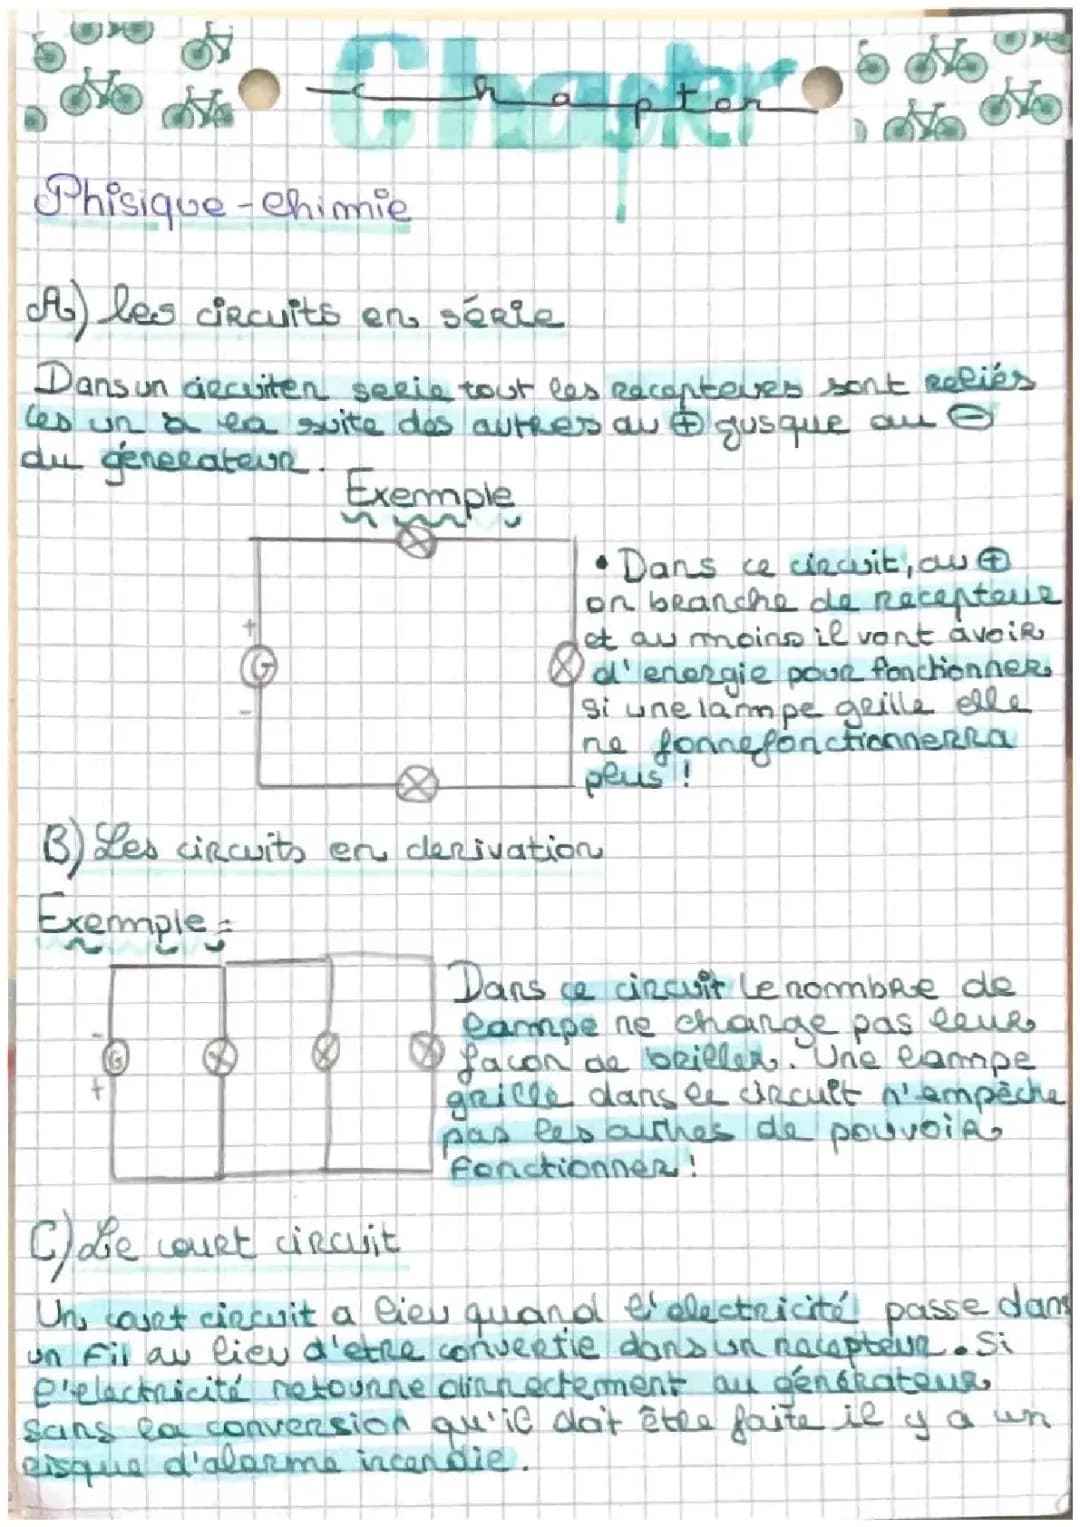 Chapter
Chapter
Phisique-chimie
A) les circuits en série
Dans un circuit en serie tout les recepteurs sont reliés
les un à la suite des autres du ⊕ jusque au ⊖
du génerateur.
Exemple
+
G
-
• Dans ce circuit, au ⊕
on branche de recepteur
et au moins il vont avoir
d'energie pour fonctionner
si une lampe grille elle
ne fonnefonctionnerra
plus !
B) Les circuits en derivation
Exemple =
-
G
+
Dans ce circuit le nombre de
lampe ne change pas leur
facon de briller. Une lampe
grille dans le circuit n'empèche
pas les authes de pouvoir
fonctionner !
C) Le court circuit
Un court circuit a lieu quand l'electricité passe dans
un fil au lieu d'etre convertie dans un recepteur. Si
l'electricité retourne dirrectement au générateur
sans la conversion qu'il doit être faite il y a un
risque d'alarme incendie.